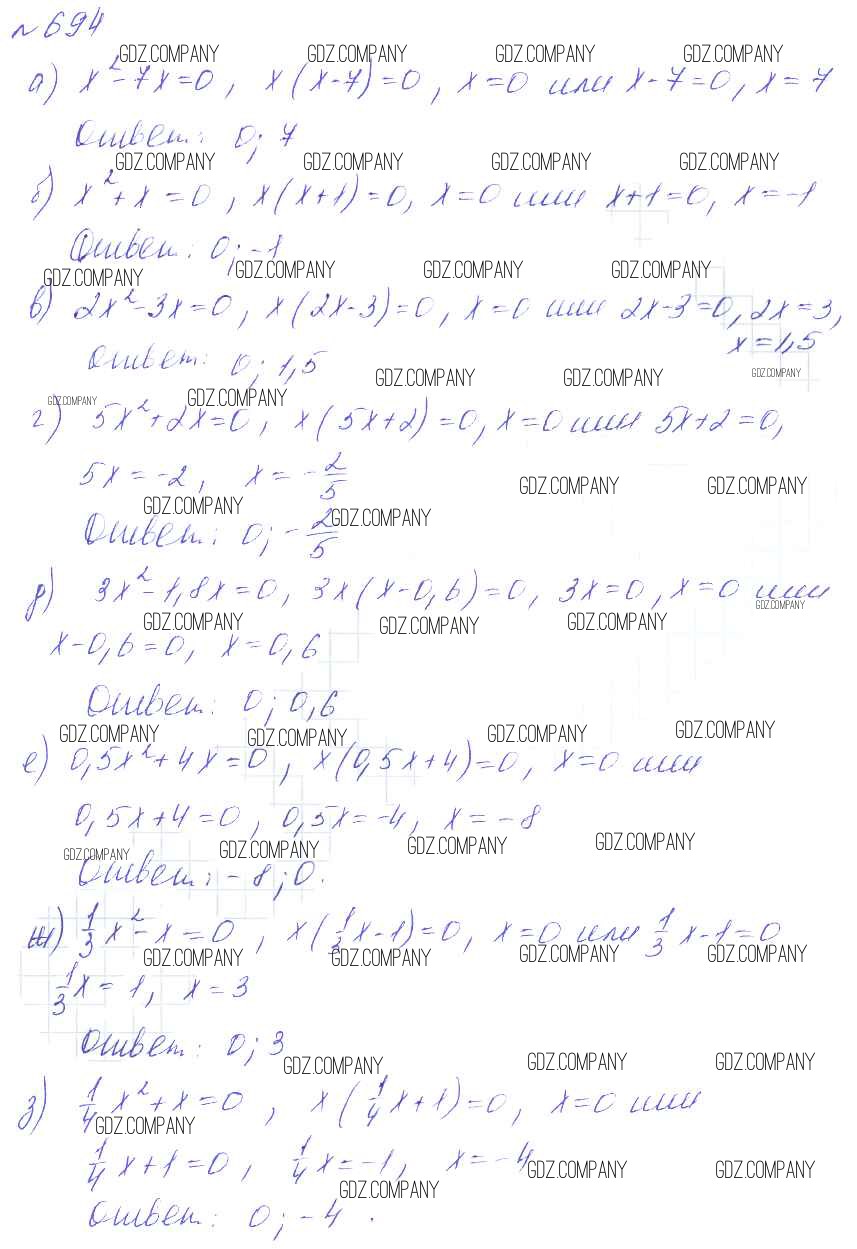 №694
GDZ.COMPANY GDZ.COMPANY GDZ.COMPANY GDZ.COMPANY
а) x²-7x=0, x(x-7)=0, x=0 или x-7=0, x=7
Ответ: 0; 7
GDZ.COMPANY GDZ.COMPANY GDZ.COMPANY GDZ.COMPANY
б) x²+x=0, x(x+1)=0, x=0 или x+1=0, x=-1
Ответ: 0; -1
GDZ.COMPANY GDZ.COMPANY GDZ.COMPANY GDZ.COMPANY
в) 2x²-3x=0, x(2x-3)=0, x=0 или 2x-3=0, 2x=3,
x=1,5
Ответ: 0; 1,5
GDZ.COMPANY GDZ.COMPANY GDZ.COMPANY
GDZ.COMPANY GDZ.COMPANY
г) 5x²+2x=0, x(5x+2)=0, x=0 или 5x+2=0,
5x=-2, x=-2/5
GDZ.COMPANY GDZ.COMPANY GDZ.COMPANY GDZ.COMPANY
Ответ: 0; -2/5
д) 3x²-1,8x=0, 3x(x-0,6)=0, 3x=0, x=0 или
GDZ.COMPANY GDZ.COMPANY GDZ.COMPANY GDZ.COMPANY
x-0,6=0, x=0,6
Ответ: 0; 0,6
GDZ.COMPANY GDZ.COMPANY GDZ.COMPANY GDZ.COMPANY
е) 0,5x²+4x=0, x(0,5x+4)=0, x=0 или
0,5x+4=0, 0,5x=-4, x=-8
GDZ.COMPANY GDZ.COMPANY GDZ.COMPANY GDZ.COMPANY
Ответ: -8; 0.
ж) 1/3x²-x=0, x(1/3x-1)=0, x=0 или 1/3x-1=0
GDZ.COMPANY GDZ.COMPANY GDZ.COMPANY GDZ.COMPANY
1/3x=1, x=3
Ответ: 0; 3
GDZ.COMPANY GDZ.COMPANY GDZ.COMPANY
з) 1/4x²+x=0, x(1/4x+1)=0, x=0 или
GDZ.COMPANY
1/4x+1=0, 1/4x=-1, x=-4
GDZ.COMPANY GDZ.COMPANY GDZ.COMPANY
Ответ: 0; -4.